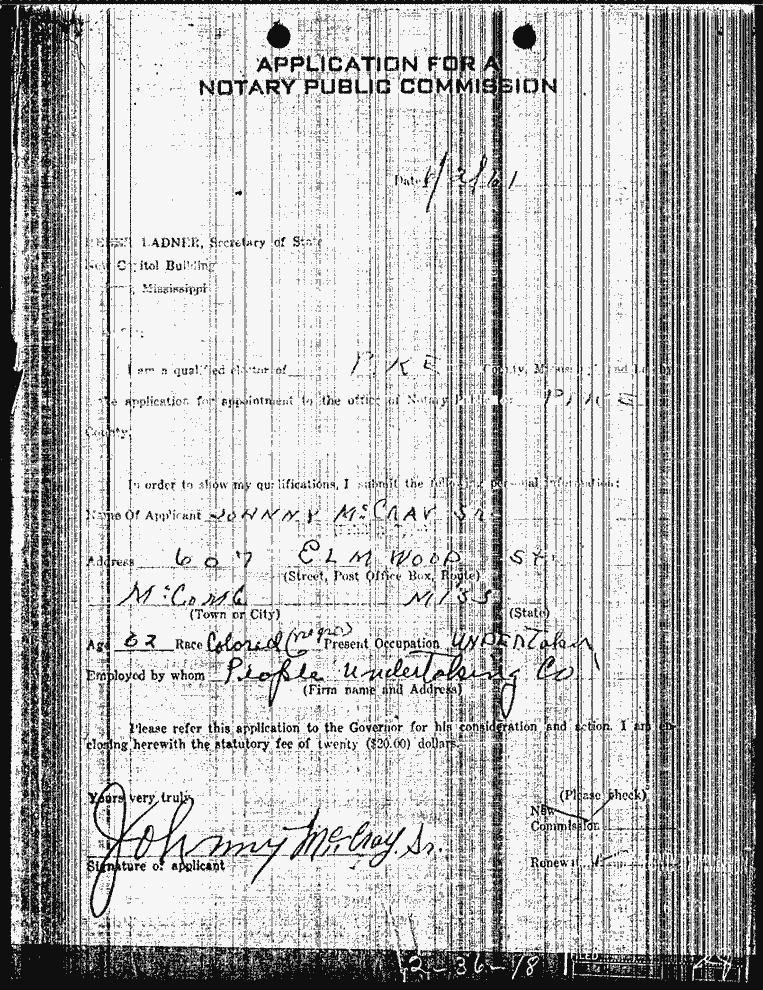 APPLICATION FOR A
NOTARY PUBLIC COMMISSION
Date /2/61
LADNER, Secretary of State
New Capitol Building
, Mississippi
I am a qualified elector of PIKE County,
the application for appointment to the office of Notary Public for PIKE
County.
In order to show my qualifications, I submit the following personal information:
Name Of Applicant JOHNNY McCRAY Sr.
Address 607 ELMWOOD St.
(Street, Post Office Box, Route)
McComb MISS
(Town or City) (State)
Age 62 Race Colored (negro) Present Occupation UNDERTaker
Employed by whom Peoples Undertaking Co
(Firm name and Address)
Please refer this application to the Governor for his consideration and action. I am en-
closing herewith the statutory fee of twenty ($20.00) dollars.
Yours very truly,
(Please check)
New
Commission
Johnny McCray, Sr.
Signature of applicant
Renewal
2-36-18